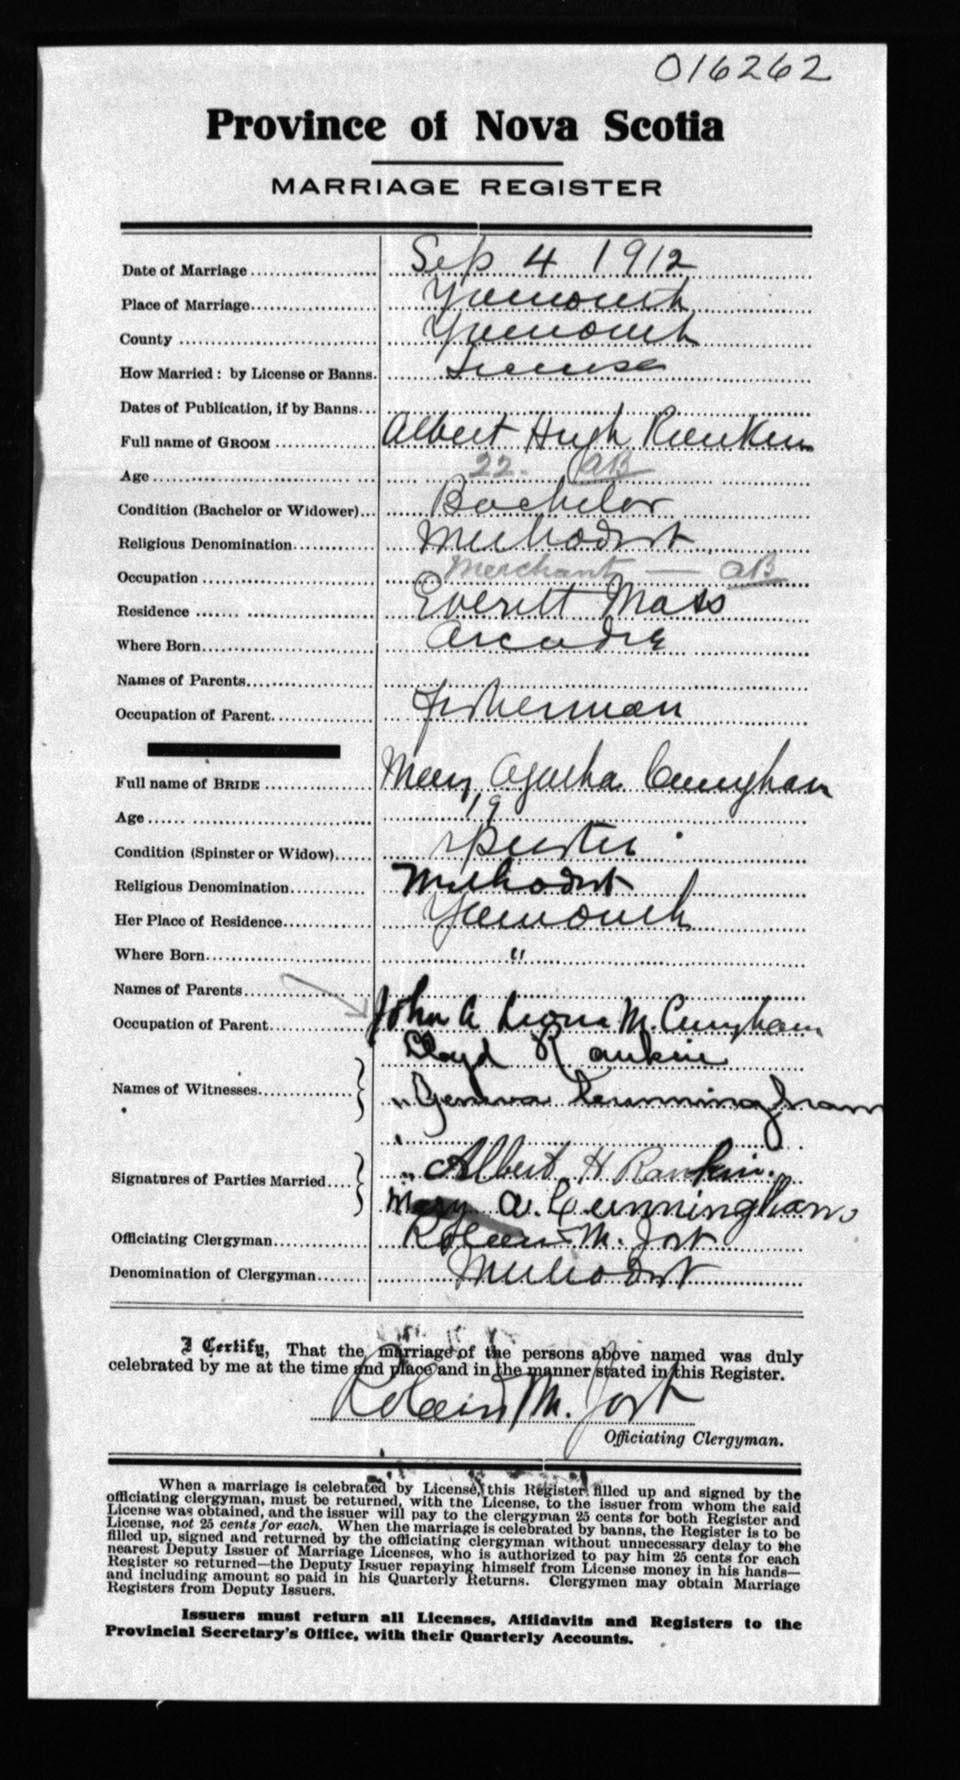 016262
Province of Nova Scotia
MARRIAGE REGISTER
Date of Marriage Sep 4 1912
Place of Marriage Yarmouth
County Yarmouth
How Married: by License or Banns. License
Dates of Publication, if by Banns
Full name of GROOM Albert Hugh Rankin
Age 22. AB
Condition (Bachelor or Widower) Bachelor
Religious Denomination Methodist
Occupation Merchant — AB
Residence Everett Mass
Where Born Arcadia
Names of Parents
Occupation of Parent fisherman
Full name of BRIDE Mary Agatha Cunningham
Age 19
Condition (Spinster or Widow) Spinster
Religious Denomination Methodist
Her Place of Residence Yarmouth
Where Born "
Names of Parents
Occupation of Parent John A M. Cunningham
Lloyd Rankin
Names of Witnesses
" Geneva Cunningham
" Albert H Rankin.
Signatures of Parties Married
Mary A. Cunningham
Officiating Clergyman M. Jost
Denomination of Clergyman Methodist
I Certify, That the marriage of the persons above named was duly
celebrated by me at the time and place and in the manner stated in this Register.
M. Jost
Officiating Clergyman.
When a marriage is celebrated by License, this Register filled up and signed by the
officiating clergyman, must be returned, with the License, to the issuer from whom the said
License was obtained, and the issuer will pay to the clergyman 25 cents for both Register and
License, not 25 cents for each. When the marriage is celebrated by banns, the Register is to be
filled up, signed and returned by the officiating clergyman without unnecessary delay to the
nearest Deputy Issuer of Marriage Licenses, who is authorized to pay him 25 cents for each
Register so returned—the Deputy Issuer repaying himself from License money in his hands—
and including amount so paid in his Quarterly Returns. Clergymen may obtain Marriage
Registers from Deputy Issuers.
Issuers must return all Licenses, Affidavits and Registers to the
Provincial Secretary's Office, with their Quarterly Accounts.